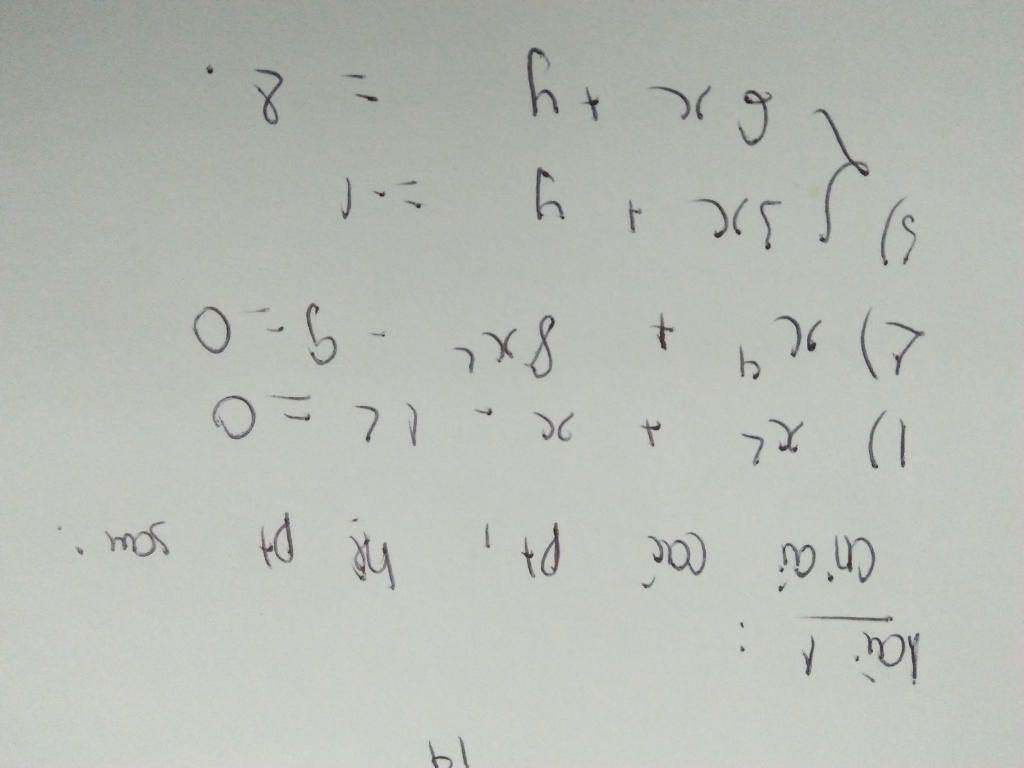 Bài 1 :
Giải các pt, hệ pt sau:
1) x² + x - 12 = 0
2) x⁴ + 8x² - 9 = 0
3) { 3x + y = -1
6x + y = 8.